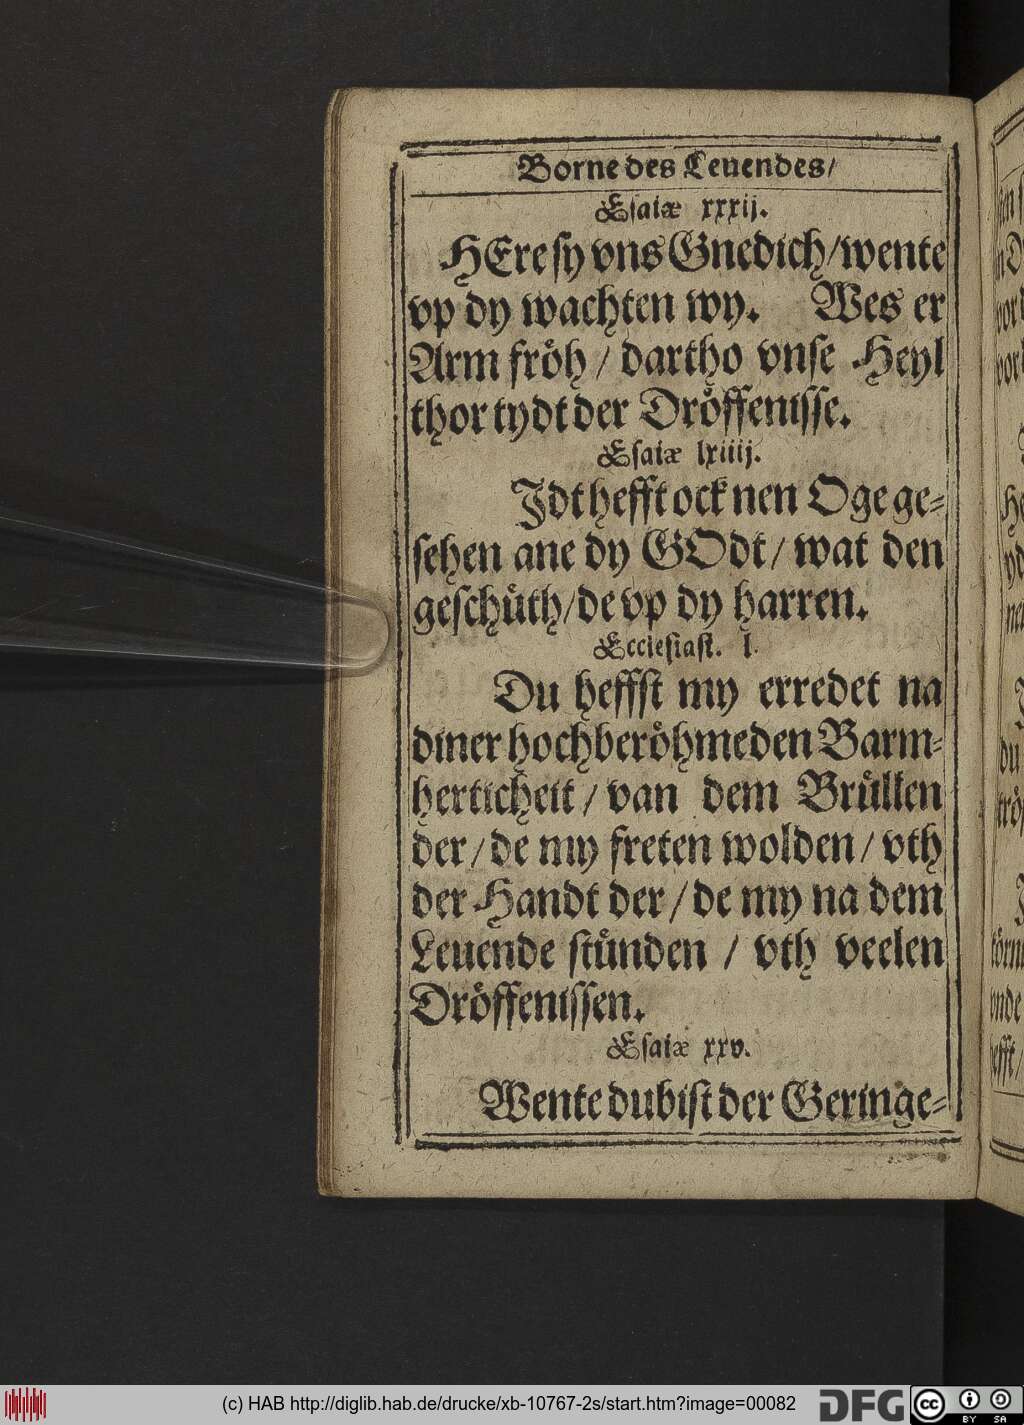 Borne des Leuendes/
Esaiæ xxxij.
HEre sy vns Gnedich/wente
vp dy wachten wy. Wes er
Arm fröh / dartho vnse Heyl
thor tydt der Dröffenisse.
Esaiæ lxiiij.
Jdt hefft ock nen Oge ge-
sehen ane dy GOdt/ wat den
geschüth/de vp dy harren.
Ecclesiast. l.
Du heffst my erredet na
diner hochberöhmeden Barm-
herticheit / van dem Brüllen
der/ de my freten wolden / vth
der Handt der / de my na dem
Leuende stünden / vth veelen
Dröffenissen.
Esaiæ xxv.
Wente du bist der Geringe-
(c) HAB http://diglib.hab.de/drucke/xb-10767-2s/start.htm?image=00082
DFG
cc
BY SA